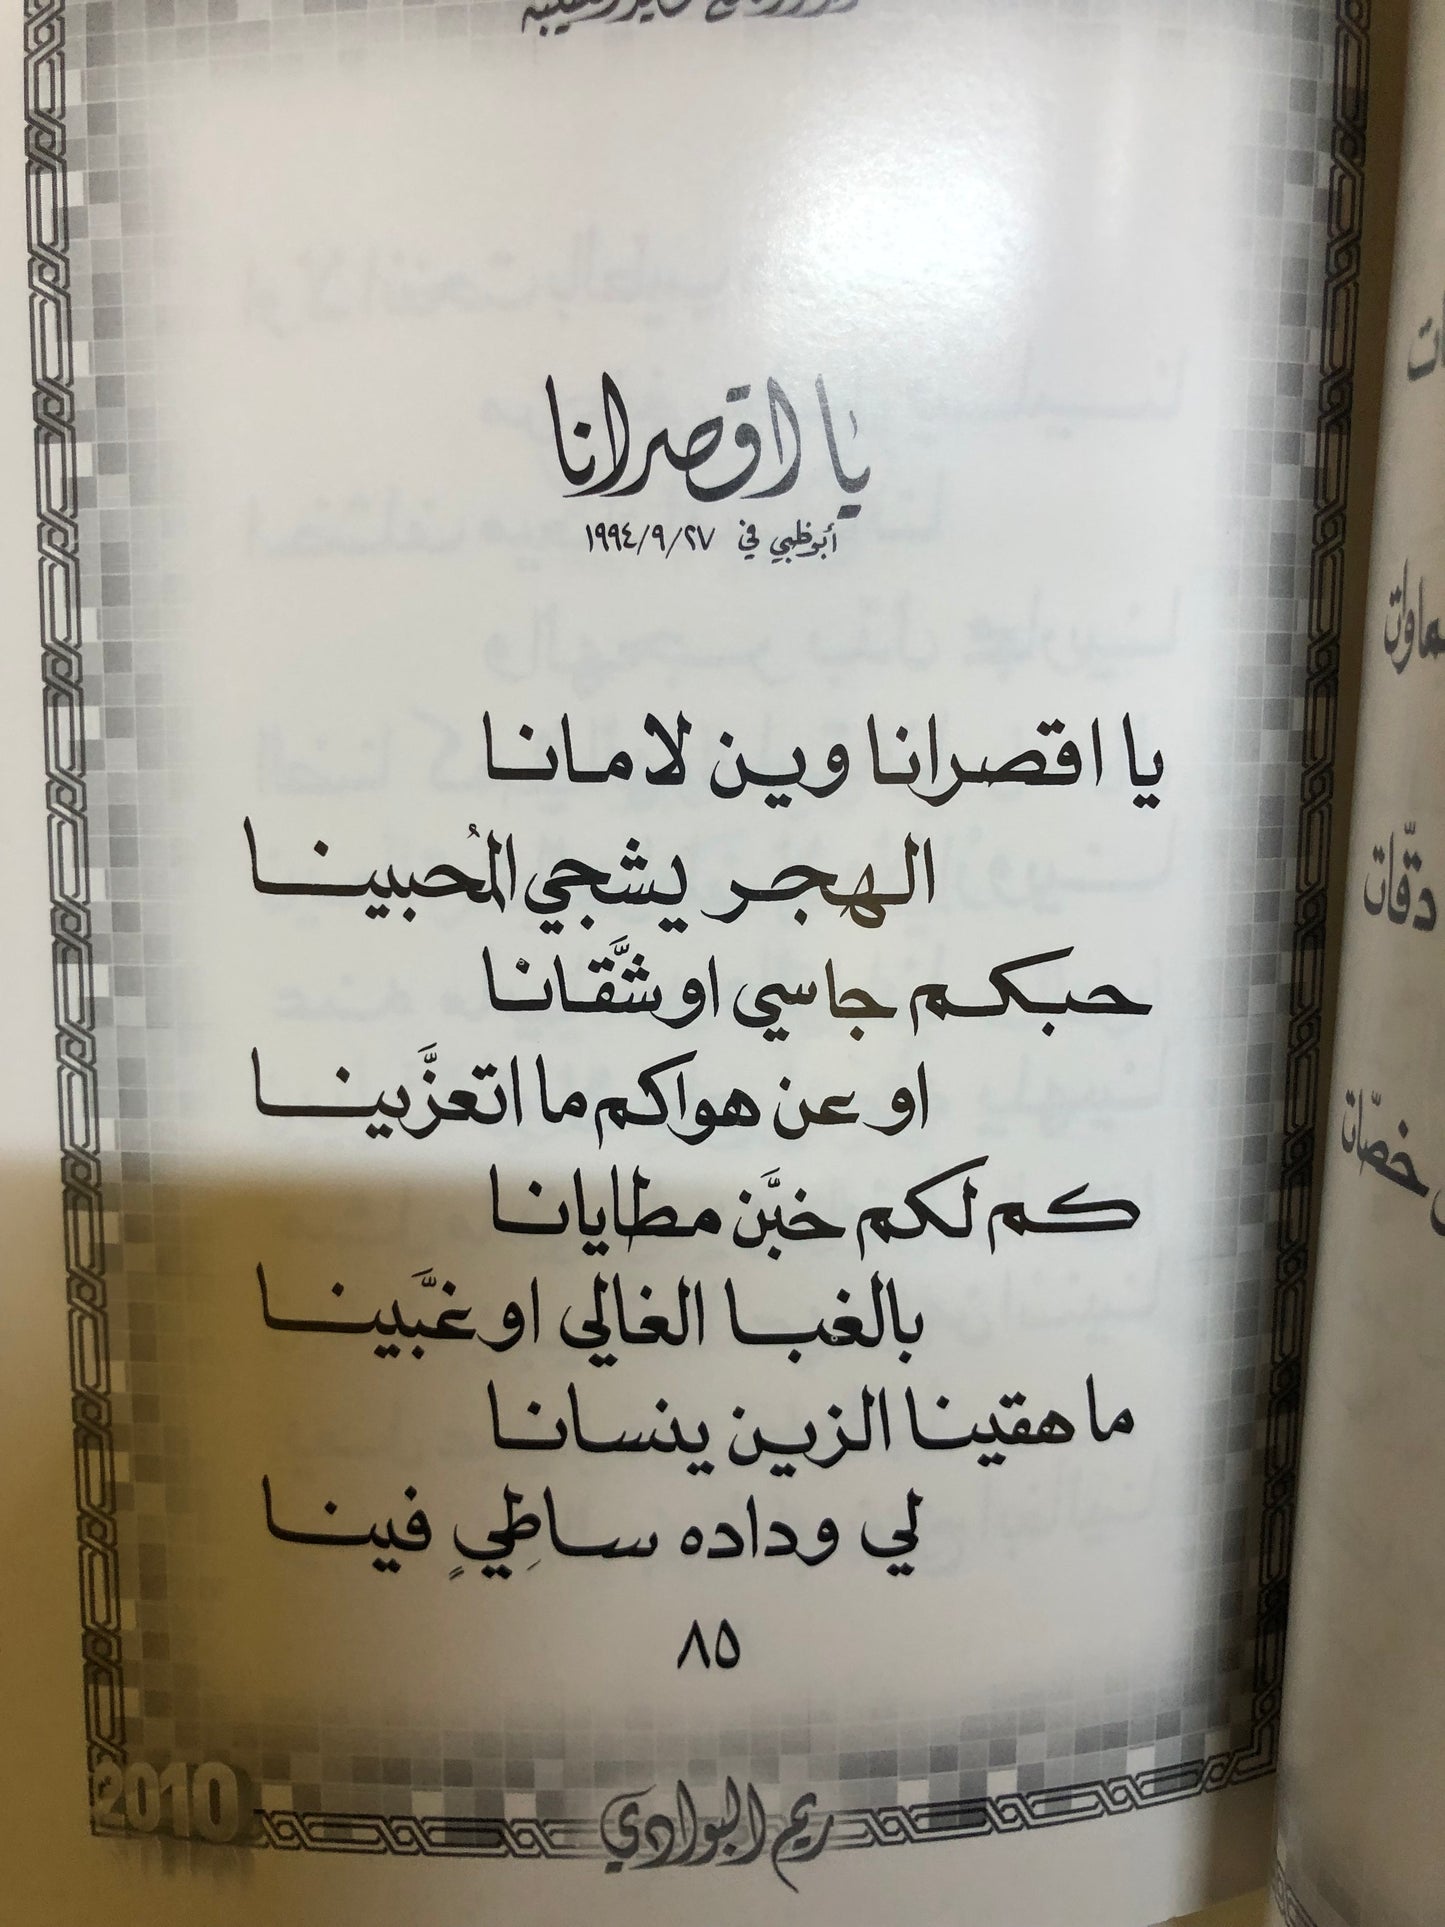 يا اقصرانا
أبوظبي في ٢٧/٩/١٩٩٤
يا اقصرانا وين لامانا
الهجر يشجي المُحبينا
حبكم جاسي او شَّقانا
او عن هواكم ما اتعزَّينا
كم لكم خبَّن مطايانا
بالغبا الغالي او غبَّينا
ما هقينا الزين ينسانا
لي وداده ساطِيٍ فينا
٨٥
2010
ريم البوادي
دقّات
خصّات